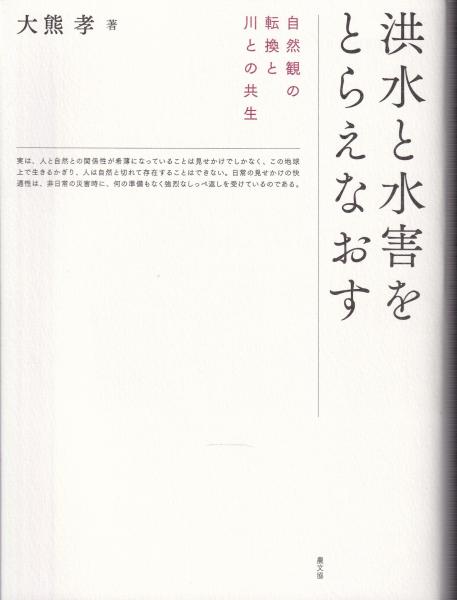 洪水と水害を
とらえなおす
自然観の
転換と
川との共生
大熊孝 著
実は、人と自然との関係性が希薄になっていることは見せかけでしかなく、この地球
上で生きるかぎり、人は自然と切れて存在することはできない。日常の見せかけの快
適性は、非日常の災害時に、何の準備もなく強烈なしっぺ返しを受けているのである。
農文協